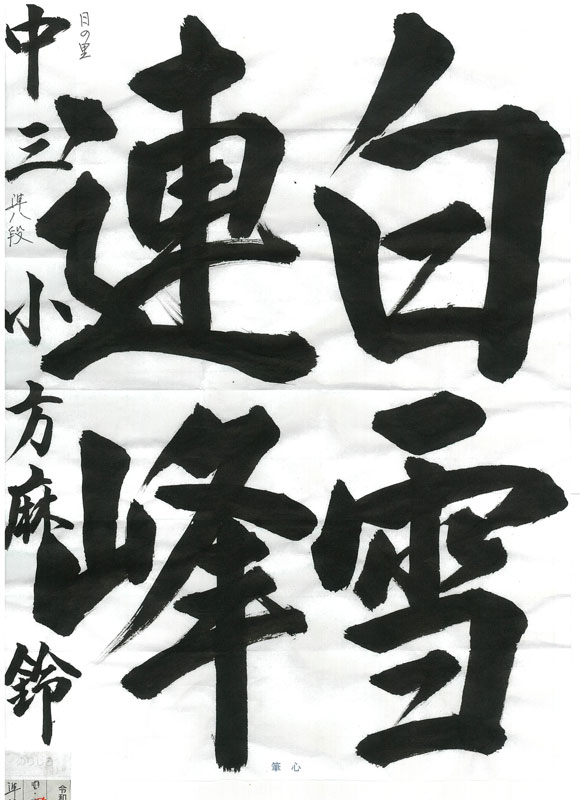 白雪
連峰
日の里
中三 準八段 小方麻鈴
筆心
令和
準